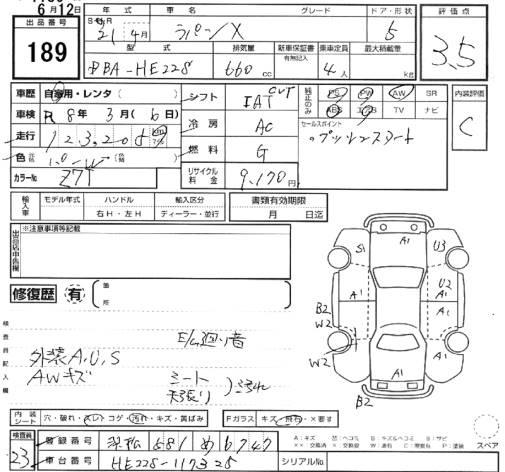 6月12日
出品番号 189
年式 H21年4月
車名 ラパンX
グレード
ドア・形状 5
評価点 3.5
型式 DBA-HE22S
排気量 660 cc
新車保証書 有無記入
乗車定員 4人
最大積載量 kg
車歴 自家用・レンタ( )
シフト IAT CVT
純正のみ PS PW AW SR
ABS エアB TV ナビ
内装評価 C
車検 R8年3月(6)日
冷房 AC
セールスポイント
・プッシュスタート
走行 123,205 km マイル
燃料 G
色 元色 P.W (色替 )
カラーNo. Z7T
リサイクル料金 9,170円
輸入車 モデル年式 ハンドル 輸入区分
右H・左H ディーラー・並行
書類有効期限
月 日迄
出品店申告欄 ※注意事項等記載
修復歴 有 箇所
検査員記入欄
E/G廻り音
外装A,U,S
AWキズ
シート
天張り
汚れ
S1 A1 U3
A1 U2 A1
B2 W2 A1
W2 A1
B2
内装シート 穴・破れ・スレ・コゲ・汚れ・キズ・黄ばみ
Fガラス キズ・飛石・×要す
A:キズ U:ヘコミ B:キズ&ヘコミ S:サビ
××:交換済 ×:要交換 W:波有 C:腐蝕有 P:塗装
スペア
検査員 23
登録番号 浜松 581 め 6747
車台番号 HE22S-117325
シリアルNo.